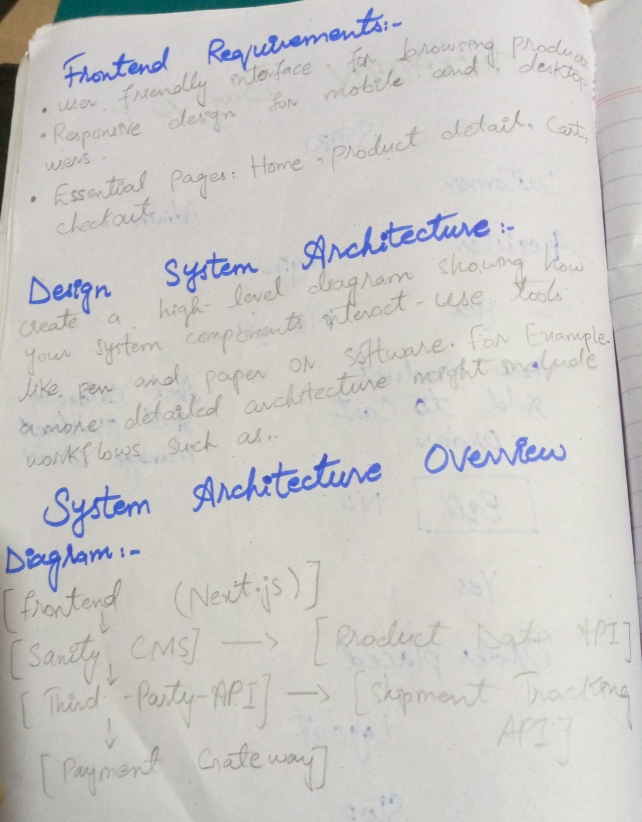 Frontend Requirements:-
• user friendly interface for browsing products
• Responsive design for mobile and desktop
users.
• Essential Pages: Home, Product detail, Cart,
checkout
Design System Architecture:-
create a high-level diagram showing how
your system components interact-use tools
like pen and paper or software. For Example.
a more detailed architecture might include
workflows such as..
System Architecture Overview
Diagram:-
[Frontend (Next.js)]
↓
[Sanity CMS] → [Product Data API]
↓
[Third-Party-API] → [Shipment Tracking
API]
↓
[Payment Gateway]